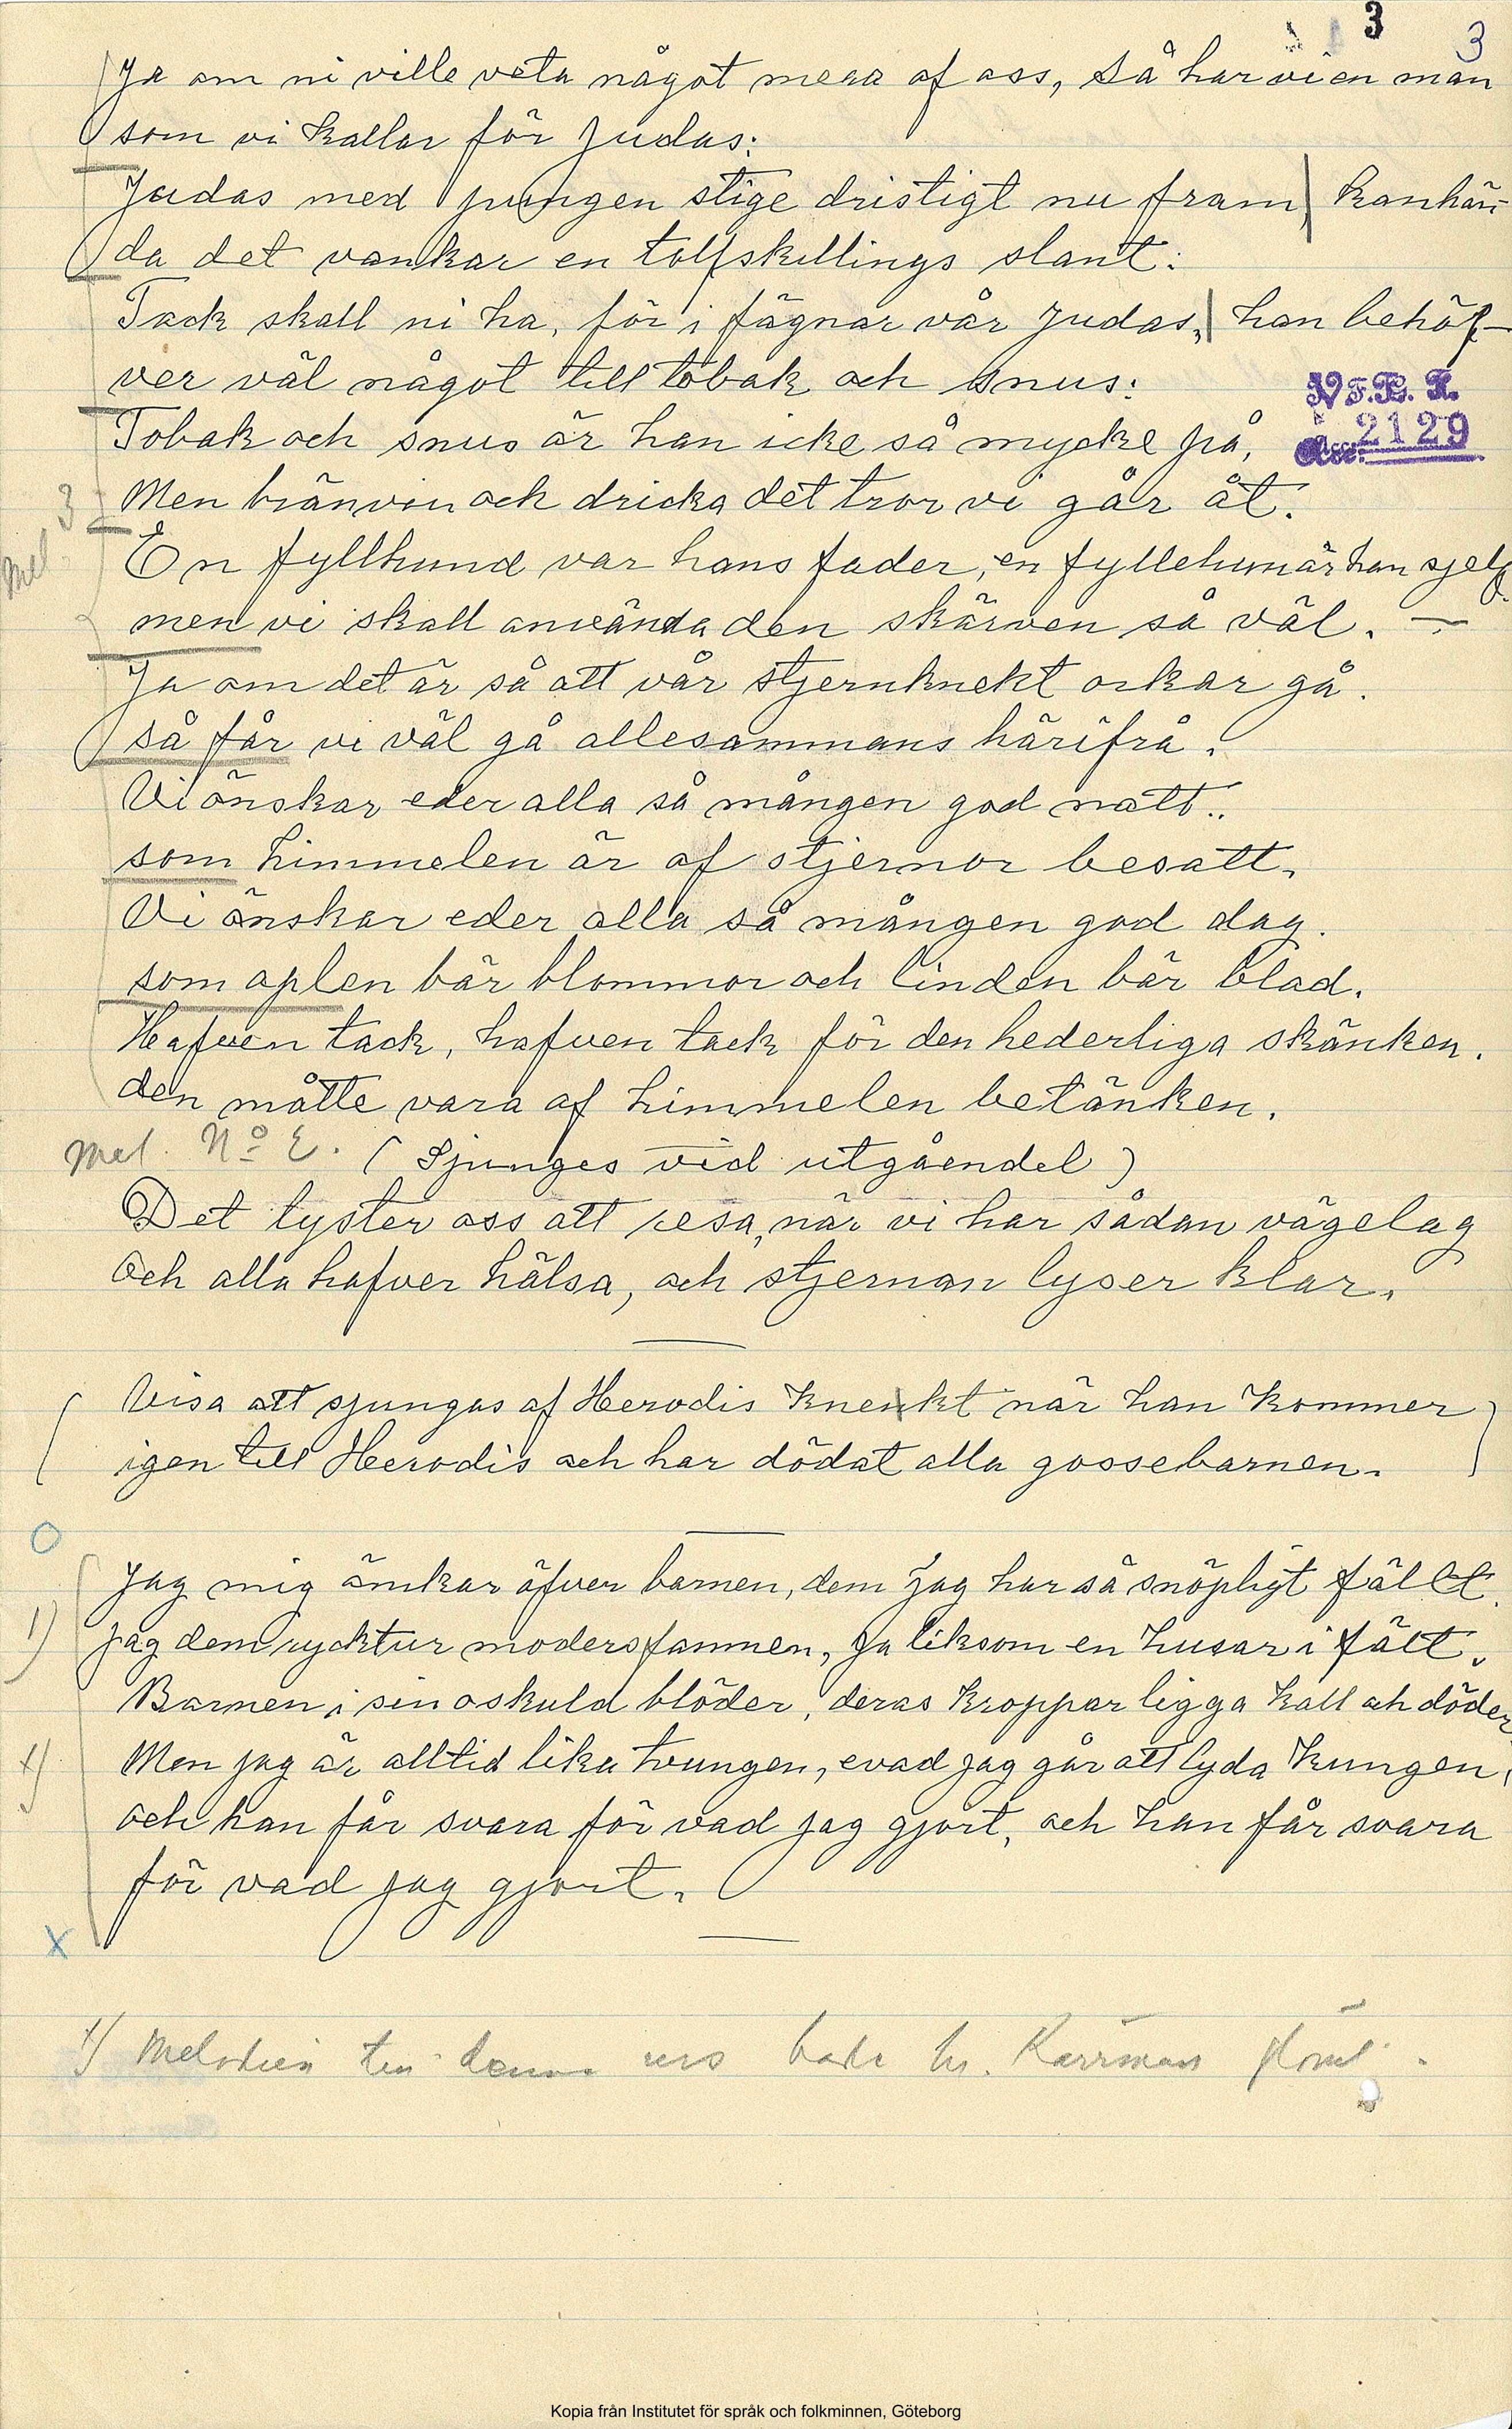 3
3
Ja om ni ville veta något mera af oss, så har vi en man
som vi kallar för Judas:
Judas med pungen stige dristigt nu fram, kanhän-
da det vankar en tolfskillings slant.
Tack skall ni ha, för i fägnar vår Judas, han behöf-
ver väl något till tobak och snus:
V.F.F.
Acc. 2129
Tobak och snus är han icke så mycke på,
Men bränvin och dricka det tror vi går åt.
Mel 3
En fyllhund var hans fader, en fyllehun är han sjelf
men vi skall använda den skärven så väl.
Ja om det är så att vår stjernknekt orkar gå.
så får vi väl gå allesammans härifrå.
Vi önskar eder alla så mången god natt..
som himmelen är af stjernor besatt.
Vi önskar eder alla så mången god dag.
som aplen bär blommor och linden bär blad.
Hafven tack, hafven tack för den hederliga skänken.
den måtte vara af himmelen betänken.
Mel. No 2. (Sjunges vid utgåendel)
Det lyster oss att resa, när vi har sådan vägelag
Och alla hafver hälsa, och stjernan lyser klar.
(Visa att sjungas af Herodis knekt när han kommer
igen till Herodis och har dödat alla gossebarnen.)
O
Jag mig ömkar öfver barnen, dem jag har så snöpligt fällt.
1)
jag dem ryckt ur modersfamnen, ja liksom en husar i fält.
Barnen i sin oskuld blöder, deras kroppar ligga kall och döder
+)
Men jag är alltid lika tvungen, evad jag går att lyda kungen,
och han får svara för vad jag gjort, och han får svara
för vad jag gjort.
X
+) Melodien till denna vers hade hr. Karrman glömt.
Kopia från Institutet för språk och folkminnen, Göteborg